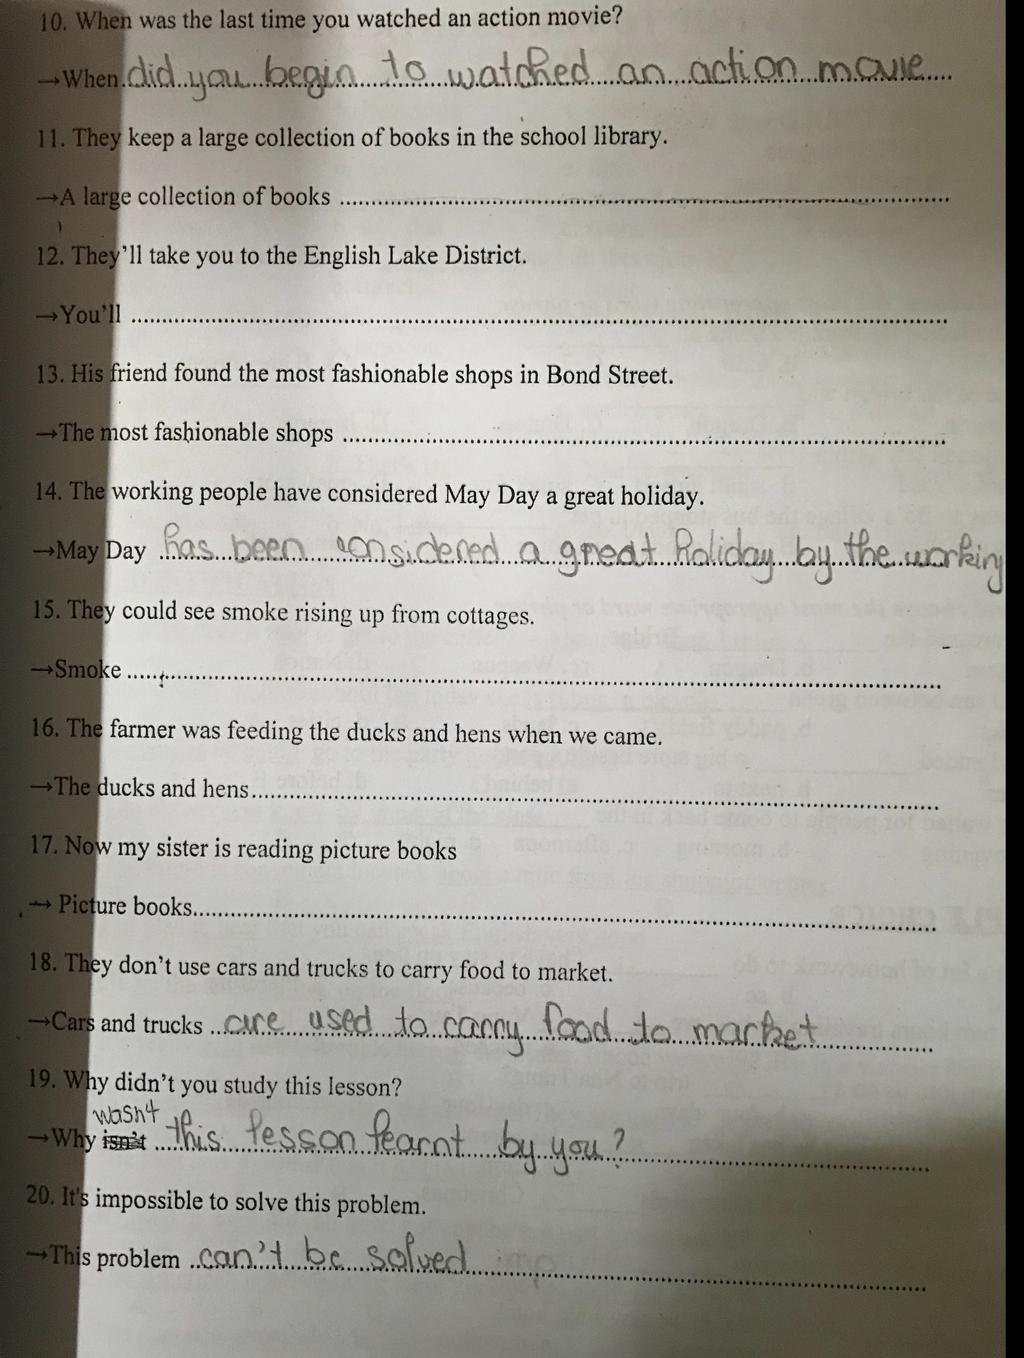 10. When was the last time you watched an action movie?
→When did you begin to watched an action movie
11. They keep a large collection of books in the school library.
→A large collection of books
12. They'll take you to the English Lake District.
→You'll
13. His friend found the most fashionable shops in Bond Street.
→The most fashionable shops
14. The working people have considered May Day a great holiday.
→May Day has been considered a great holiday by the working
15. They could see smoke rising up from cottages.
→Smoke
16. The farmer was feeding the ducks and hens when we came.
→The ducks and hens
17. Now my sister is reading picture books
→ Picture books
18. They don't use cars and trucks to carry food to market.
→Cars and trucks are used to carry food to market
19. Why didn't you study this lesson?
wasn't
→Why isn't this lesson learnt by you?
20. It's impossible to solve this problem.
→This problem can't be solved